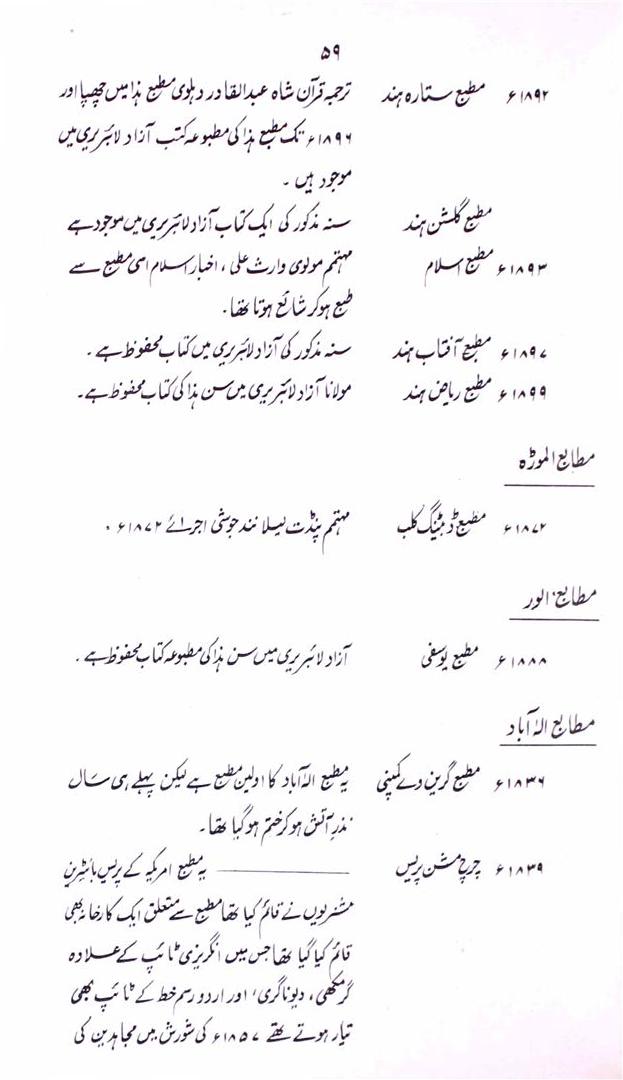 ۵۹
۱۸۹۲ء مطبع ستارہ ہند ترجمہ قرآن شاہ عبدالقادر دہلوی مطبع ہٰذا میں چھپا اور
۱۸۹۶ء تک مطبع ہٰذا کی مطبوعہ کتب آزاد لائبریری میں
موجود ہیں ۔
مطبع گلشن ہند سنہ مذکور کی ایک کتاب آزاد لائبریری میں موجود ہے
۱۸۹۳ء مطبع اسلام مہتمم مولوی وارث علی ، اخبار اسلام اسی مطبع سے
طبع ہوکر شائع ہوتا تھا۔
۱۸۹۷ء مطبع آفتاب ہند سنہ مذکور کی آزاد لائبریری میں کتاب محفوظ ہے ۔
۱۸۹۹ء مطبع ریاض ہند مولانا آزاد لائبریری میں سن ہٰذا کی کتاب محفوظ ہے۔
مطابع الموڑہ
۱۸۷۲ء مطبع ڈبٹینگ کلب مہتمم پنڈت لیلا نند جوشی اجرائے ۱۸۷۲ء ۔
مطابع الور
۱۸۸۸ء مطبع یوسفی آزاد لائبریری میں سن ہٰذا کی مطبوعہ کتاب محفوظ ہے ۔
مطابع الہٰ آباد
۱۸۳۶ء مطبع گرین دے کمپنی یہ مطبع الہٰ آباد کا اولین مطبع ہے لیکن پہلے ہی سال
نذر آتش ہوکر ختم ہو گیا تھا۔
۱۸۳۹ء چرچ مشن پریس ـــــــ یہ مطبع امریکہ کے پریس بائٹرین
مشنریوں نے قائم کیا تھا مطبع سے متعلق ایک کارخانہ بھی
قائم کیا گیا تھا جس میں انگریزی ٹائپ کے علاوہ
گرمکھی ، دیوناگری ، اور اردو رسم خط کے ٹائپ بھی
تیار ہوتے تھے ۱۸۵۷ء کی شورش میں مجاہدین کی